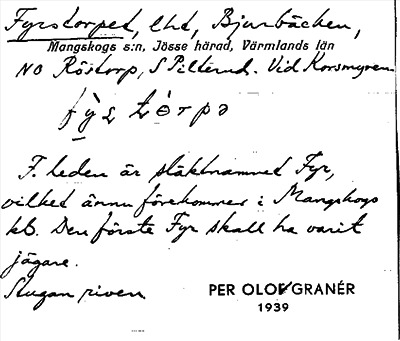 Fyrstorpet, lht, Bjurbäcken,
Mangskogs s:n, Jösse härad, Värmlands län
NO Röstorp, S Pilterud. Vid Korsmyren
fỳṣ tòrpə
F. leden är släktnamnet Fyr,
vilket ännu förekommer i Mangskogs
kb. Den förste Fyr skall ha varit
jägare.
Stugan riven.
PER OLOF GRANÉR
1939